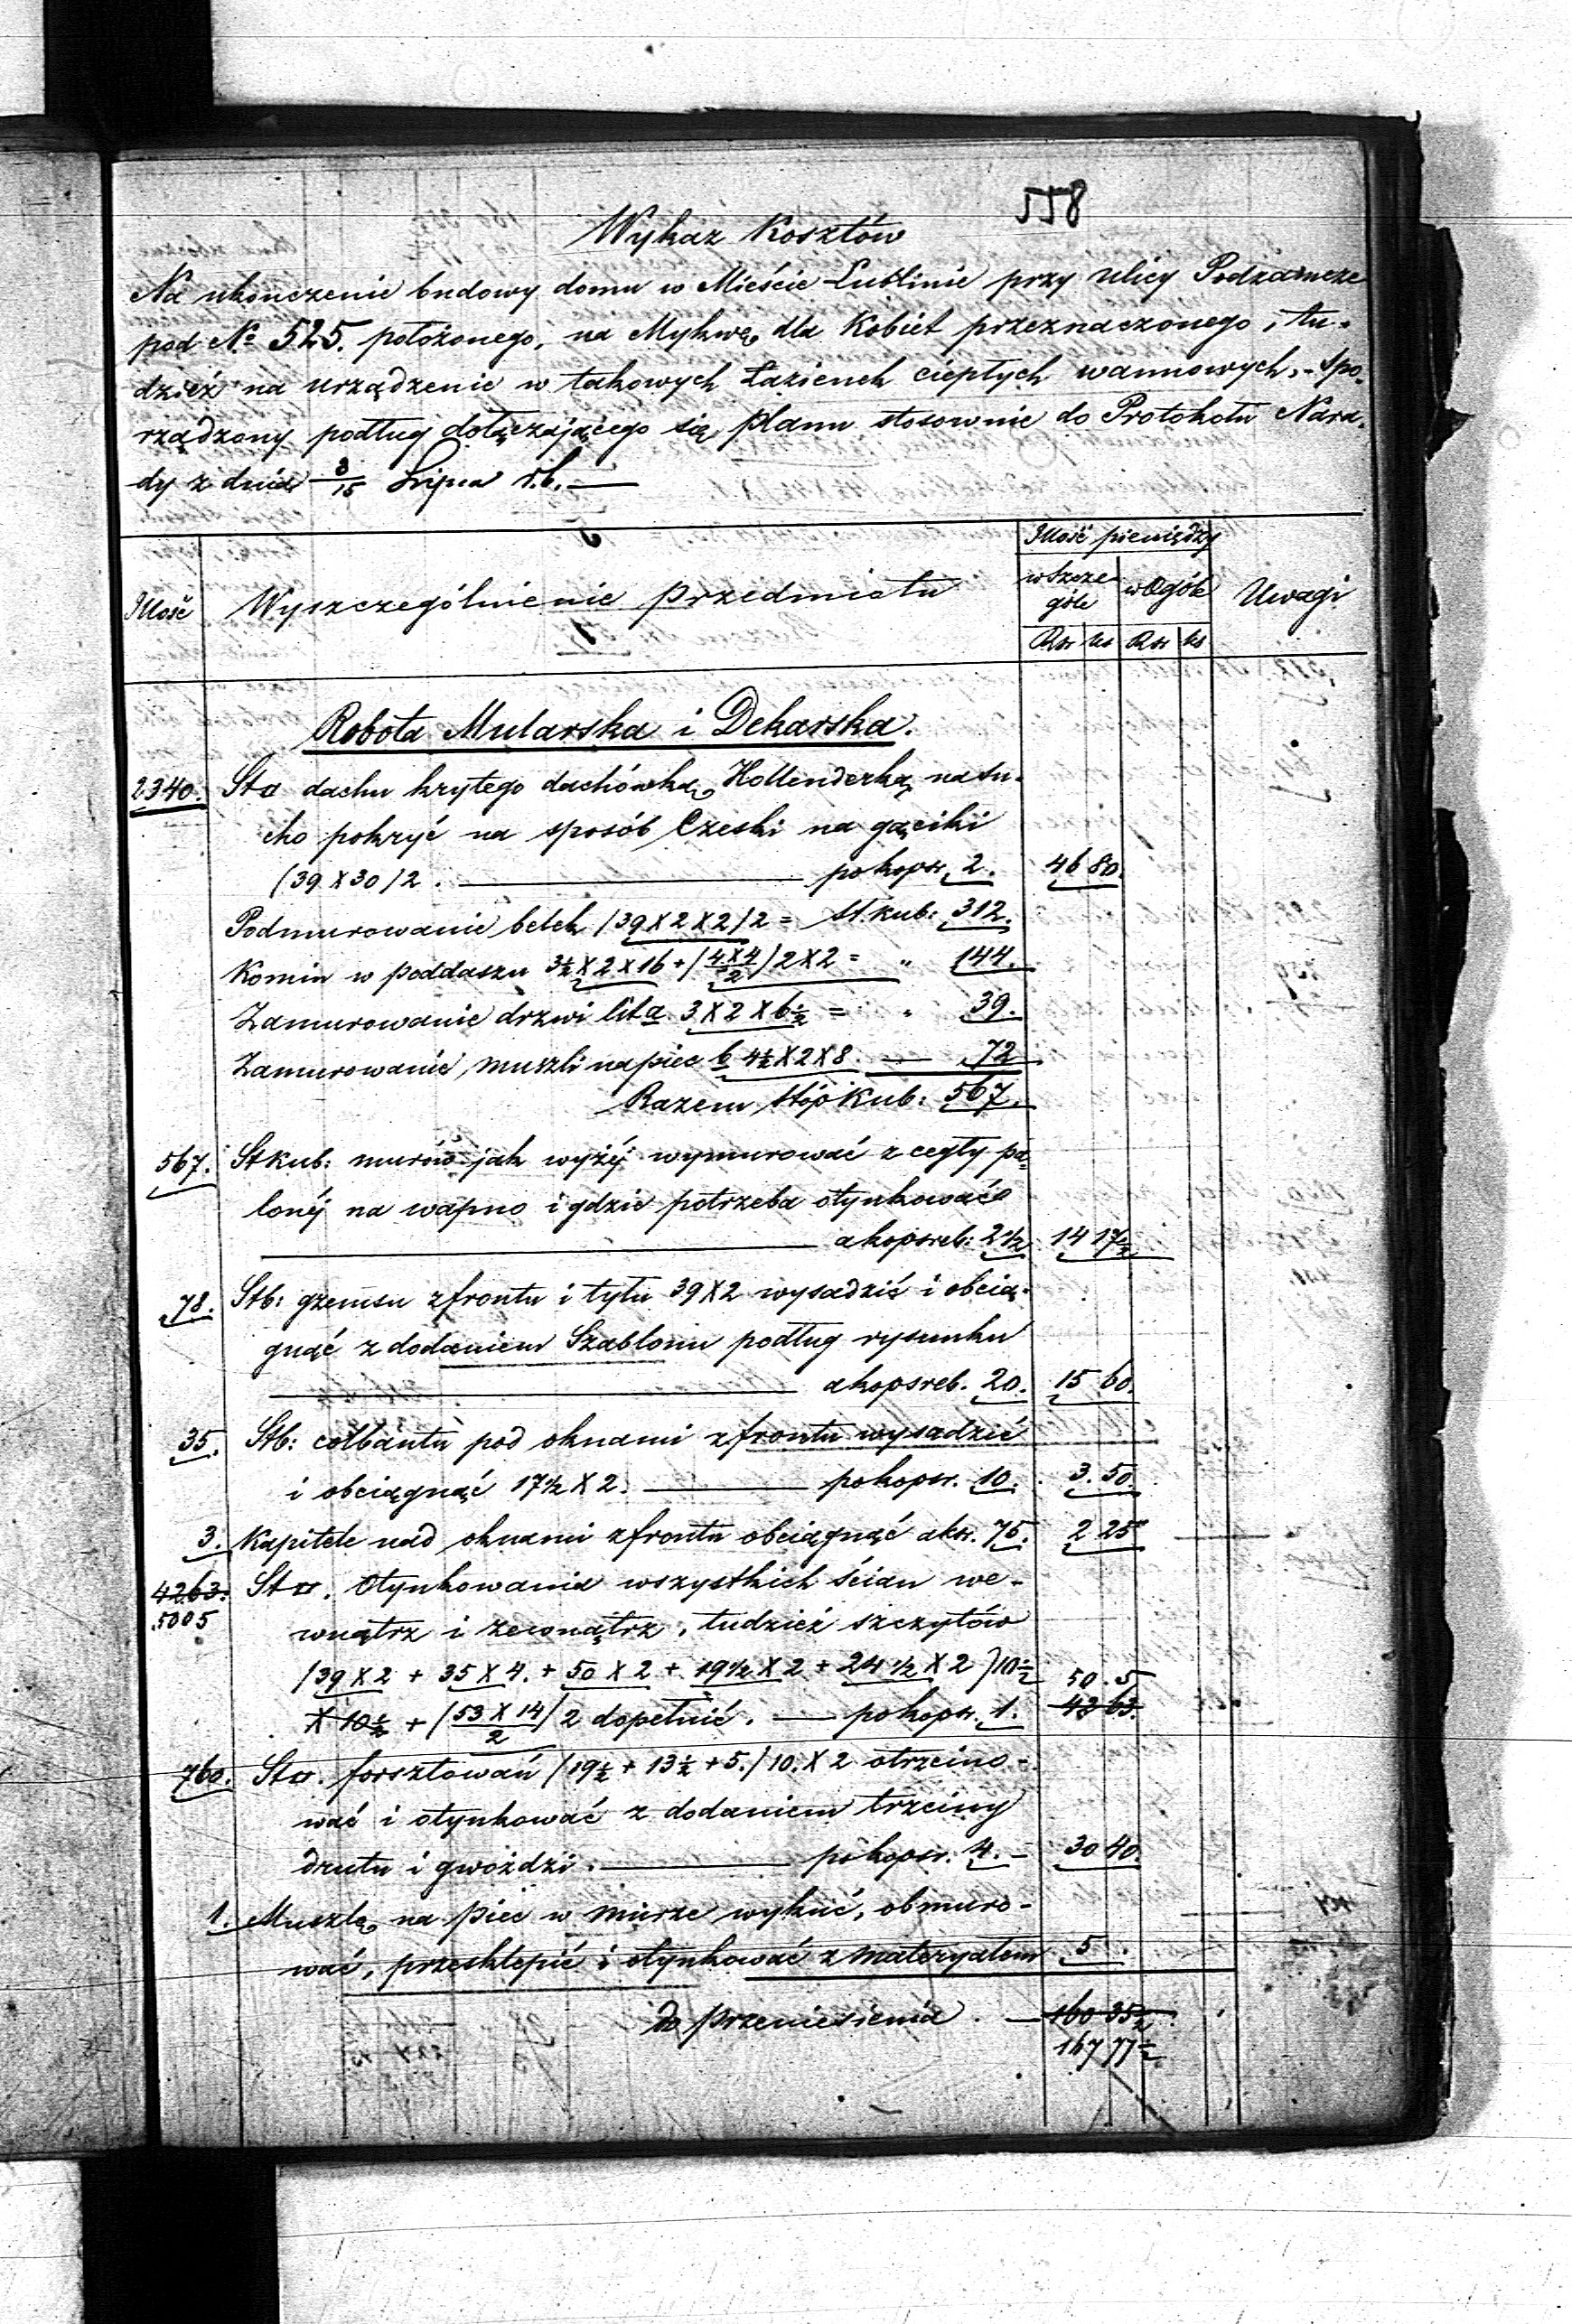 558
Wykaz Kosztów
Na ukończenie budowy domu w Mieście Lublinie przy ulicy Podzamcze
pod № 525. położonego, na Mykwę dla Kobiet przeznaczonego, tu-
dzież na urządzenie w takowych Łazienek ciepłych wannowych, - spo-
rządzony podług dołączającego się planu stosownie do Protokołu Nara-
dy z dnia 3/15 Lipca r.b. —
Ilość pieniędzy
Ilość Wyszczególnienie przedmiotu w szcze- w Ogóle Uwagi
góle
Rsr ks Rsr ks
Robota Mularska i Dekarska.
2340. St□ dachu krytego dachówką Hollenderką na su-
cho pokryć na sposób Czeski na gąciki
(39 X 30) 2. — po kopsr. 2. 46 80.
Podmurowanie belek (39 X 2 X 2) 2 = st. kub: 312.
Komin w poddaszu 3½ X 2 X 16 + (4 X 4/2) 2 X 2 = " 144.
Zamurowanie drzwi lit a 3 X 2 X 6½ = " 39.
Zamurowanie muszli na piec b 4½ X 2 X 8. — 72
Razem stóp Kub: 567.
567. St kub: murów jak wyżéj wymurować z cegły pa-
lonéj na wapno i gdzie potrzeba otynkować
a kopsreb: 2½ 14 17½
78. Stb: gzemsu z frontu i tyłu 39 X 2 wysadzić i obcią-
gnąć z dodaniem Szablonu podług rysunku
a kopsreb. 20. 15 60.
35. Stb: colbantu pod oknami z frontu wysadzić
i obciągnąć 17½ X 2. — po kopsr. 10. 3. 50.
3. Kapitele nad oknami z frontu obciągnąć a ksr. 75. 2 25
4263. St□. Otynkowania wszystkich ścian we-
5005 wnątrz i zewnątrz, tudzież szczytów
(39 X 2 + 35 X 4. + 50 X 2 + 19½ X 2 + 24½ X 2) 10½ 50. 5
X 10½ + (53 X 14/2) 2 dopełnić. — po kopsr. 1. 42 63.
760. St□. forsztowań (19½ + 13½ + 5.) 10. X 2 otrzcino-
wać i otynkować z dodaniem trzciny
drutu i gwoździ. — po kopsr. 4. - 30 40.
1. Muszlę na piec w murze wykuć, obmuro-
wać, przesklepić i otynkować z materyałem 5 .
do przeniesienia. — 160 35½
167 77½